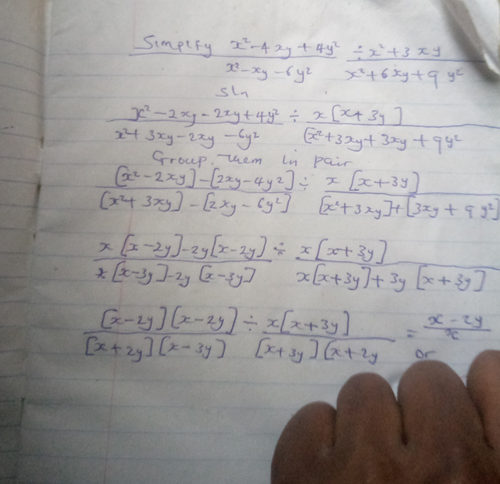 Simplify x²-4xy+4y² ÷ x²+3xy
x²-xy-6y² x²+6xy+9y²
Sln
x²-2xy-2xy+4y² ÷ x[x+3y]
x²+3xy-2xy-6y² [x²+3xy+3xy+9y²
Group them in pair
[x²-2xy]-[2xy-4y²] ÷ x[x+3y]
[x²+3xy]-[2xy-6y²] [x²+3xy]+[3xy+9y²]
x[x-2y]-2y[x-2y] ÷ x[x+3y]
x[x-3y]-2y[x-3y] x[x+3y]+3y[x+3y]
[x-2y][x-2y] ÷ x[x+3y] = x-2y
[x+2y][x-3y] [x+3y][x+2y x
or